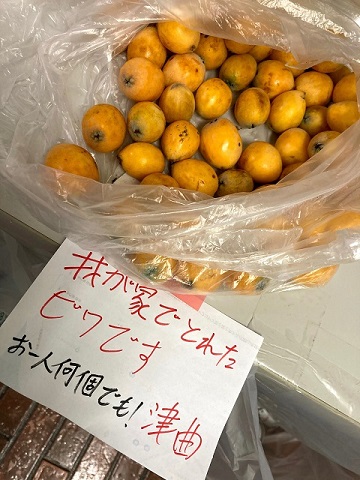 我が家でとれた
ビワです
お一人何個でも! 津曲